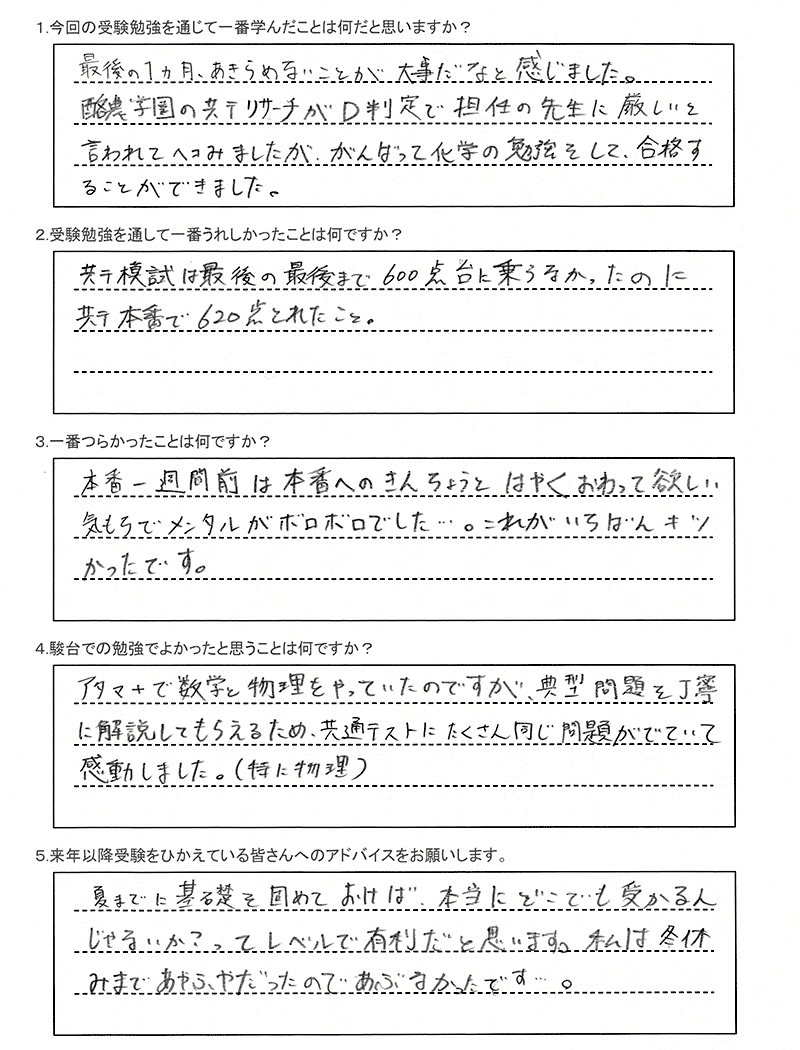 1.今回の受験勉強を通じて一番学んだことは何だと思いますか？
最後の1ヵ月、あきらめないことが大事だなと感じました。
酪農学園の共テリサーチがD判定で担任の先生に厳しいと
言われてヘコみましたが、がんばって化学の勉強をして、合格す
ることができました。
2.受験勉強を通して一番うれしかったことは何ですか？
共テ模試は最後の最後まで600点台に乗らなかったのに
共テ本番で620点とれたこと。
3.一番つらかったことは何ですか？
本番一週間前は本番へのきんちょうとはやくおわって欲しい
気もちでメンタルがボロボロでした…。これがいちばんキツ
かったです。
4.駿台での勉強でよかったと思うことは何ですか？
アタマ+で数学と物理をやっていたのですが、典型問題を丁寧
に解説してもらえるため、共通テストにたくさん同じ問題がでていて
感動しました。(特に物理)
5.来年以降受験をひかえている皆さんへのアドバイスをお願いします。
夏までに基礎を固めておけば、本当にどこでも受かるん
じゃないかってレベルで有利だと思います。私は冬休
みまであやふやだったのであぶなかったです…。